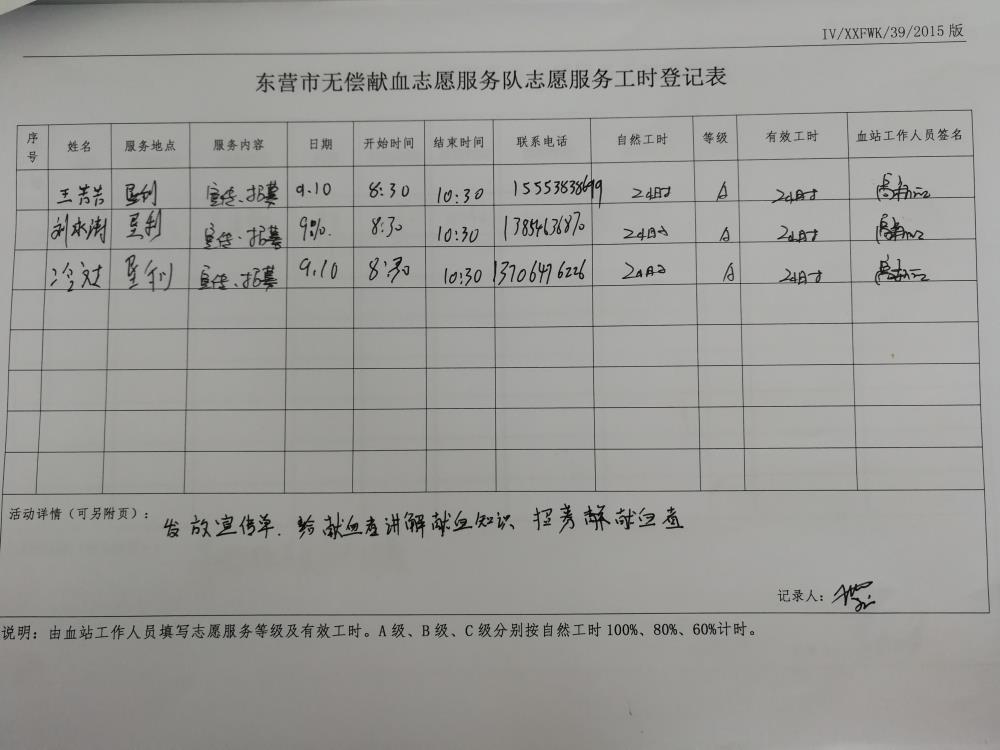 IV/XXFWK/39/2015版
东营市无偿献血志愿服务队志愿服务工时登记表
序号 姓名 服务地点 服务内容 日期 开始时间 结束时间 联系电话 自然工时 等级 有效工时 血站工作人员签名
王浩浩 垦利 宣传、招募 9.10 8:30 10:30 15553838699 2小时 A 2小时
刘水涛 垦利 宣传、招募 9.10. 8:30 10:30 2小时 A 2小时
冷文 垦利 宣传、招募 9.10 8:30 10:30 13706476226 2小时 A 2小时
活动详情(可另附页): 发放宣传单.给献血者讲解献血知识、招募献血者
记录人:
说明:由血站工作人员填写志愿服务等级及有效工时。A级、B级、C级分别按自然工时100%、80%、60%计时。